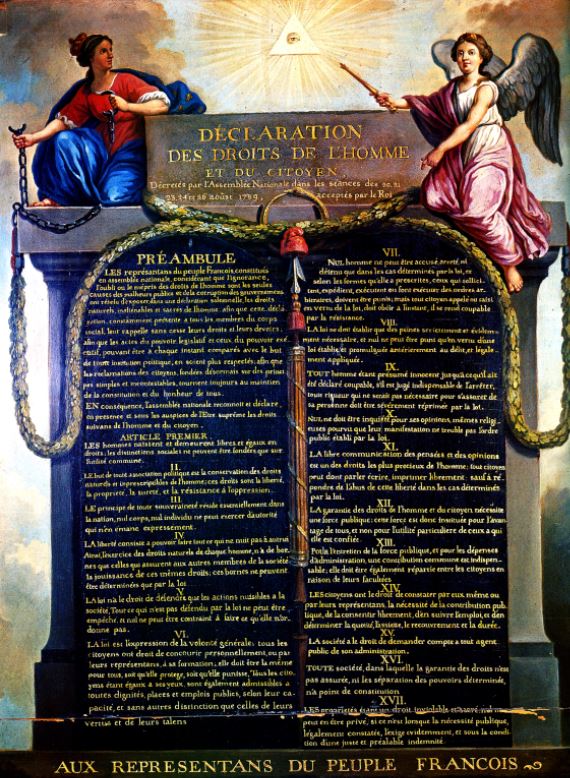 DÉCLARATION
DES DROITS DE L'HOMME
ET DU CITOYEN,
Décretés par l'Assemblée Nationale dans les séances des 20, 21
23, 24 et 26 août 1789, acceptés par le Roi
PRÉAMBULE
LES représentans du peuple François, constitués
en assemblée nationale, considérant que l'ignorance,
l'oubli ou le mépris des droits de l'homme sont les seules
causes des malheurs publics et de la corruption des gouvernemens
ont résolu d'exposer dans une déclaration solennelle, les droits
naturels, inaliénables et sacrés de l'homme: afin que cette décla
ration, constamment présente à tous les membres du corps
social, leur rappelle sans cesse leurs droits et leurs devoirs;
afin que les actes du pouvoir législatif et ceux du pouvoir exé
cutif, pouvant être à chaque instant comparés avec le but
de toute institution politique, en soient plus respectés; afin que
les réclamations des citoyens, fondées désormais sur des princi
pes simples et incontestables, tournent toujours au maintien
de la constitution et du bonheur de tous.
EN conséquence, l'assemblée nationale reconnoit et déclare,
en présence et sous les auspices de l'Etre suprême les droits
suivans de l'homme et du citoyen.
ARTICLE PREMIER.
LES hommes naissent et demeurent libres et égaux en
droits; les distinctions sociales ne peuvent être fondées que sur
l'utilité commune.
II.
LE but de toute association politique est la conservation des droits
naturels et imprescriptibles de l'homme; ces droits sont la liberté,
la propriété, la sureté, et la résistance à l'oppression.
III.
LE principe de toute souveraineté réside essentiellement dans
la nation, nul corps, nul individu ne peut exercer d'autorité
qui n'en émane expressement.
IV.
LA liberté consiste à pouvoir faire tout ce qui ne nuit pas à autrui
Ainsi, l'exercice des droits naturels de chaque homme, n'a de bor
nes que celles qui assurent aux autres membres de la société
la jouissance de ces mêmes droits; ces bornes ne peuvent
être déterminées que par la loi
V.
LA loi n'a le droit de défendre que les actions nuisibles à la
société. Tout ce qui n'est pas défendu par la loi ne peut être
empêché, et nul ne peut être contraint à faire ce qu'elle n'or
donne pas.
VI.
LA loi est l'expression de la volonté générale; tous les
citoyens ont droit de concourir personnellement, ou par
leurs représentans, à sa formation; elle doit être la même
pour tous, soit qu'elle protege, soit qu'elle punisse, Tous les cito
yens étant égaux à ses yeux, sont également admissibles à
toutes dignités, places et emplois publics, selon leur ca
pacité, et sans autres distinction que celles de leurs
vertus et de leurs talens
VII.
NUL homme ne peut être accusé, arreté, ni
détenu que dans les cas déterminés par la loi, et
selon les formes qu'elle a prescrites, ceux qui sollici
tent, expédient, exécutent ou font exécuter des ordres ar
bitraires, doivent être punis; mais tout citoyen appelé ou saisi
en vertu de la loi, doit obéir à l'instant, il se rend coupable
par la résistance.
VIII.
LA loi ne doit établir que des peines strictement et évidem
ment nécessaire, et nul ne peut être puni qu'en vertu d'une
loi établie et promulguée antérieurement au délit, et légale
ment appliquée.
IX.
TOUT homme étant présumé innocent jusqu'à ce qu'il ait
été déclaré coupable, s'il est jugé indispensable de l'arrêter,
toute rigueur qui ne serait pas nécessaire pour s'assurer de
sa personne doit être sévèrement réprimée par la loi.
X.
NUL ne doit être inquiété pour ses opinions, mêmes religi
euses pourvu que leur manifestation ne trouble pas l'ordre
public établi par la loi.
XI.
LA libre communication des pensées et des opinions
est un des droits les plus precieux de l'homme; tout citoyen
peut donc parler écrire, imprimer librement: sauf à ré
pondre de l'abus de cette liberté dans les cas déterminés
par la loi.
XII.
LA garantie des droits de l'homme et du citoyen nécessite
une force publique; cette force est donc instituée pour l'avan
tage de tous, et non pour l'utilité particuliere de ceux à qui
elle est confiée.
XIII.
Pour l'entretien de la force publique, et pour les dépenses
d'administration, une contribution commune est indispen
sable; elle doit être également répartie entre les citoyens en
raison de leurs facultées
XIV.
LES citoyens ont le droit de constater par eux même ou
par leurs représentans, la nécessité de la contribution pub
lique, de la consentir librement, d'en suivre l'emploi, et d'en
déterminer la quotité, l'assiette, le recouvrement et la durée.
XV.
LA société a le droit de demander compte à tout agent
public de son administration.
XVI.
TOUTE société, dans laquelle la garantie des droits n'est
pas assurée, ni les séparation des pouvoirs déterminée,
n'a point de constitution
XVII.
LES propriétés étant un droit inviolable et sacré, nul ne
peut en être privé, si ce n'est lorsque la nécessité publique,
légalement constatée, l'exige evidemment, et sous la condi
tion d'une juste et préalable indemnité
AUX REPRESENTANS DU PEUPLE FRANCOIS